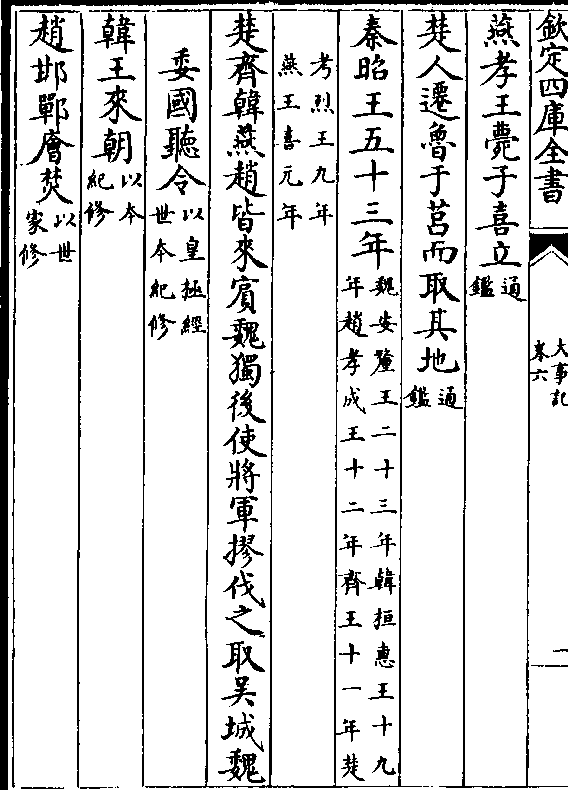 欽定四庫全書
大事記
卷六
二
燕孝王薨子喜立通
鑑
楚人遷魯于莒而取其地通
鑑
秦昭王五十三年魏安釐王二十三年韓桓惠王十九
年趙孝成王十二年齊王十一年楚
考烈王九年
燕王喜元年
楚齊韓燕趙皆來賓魏獨後使將軍摎伐之取吴城魏
委國聽令以皇極經
世本紀修
韓王來朝以本
紀修
趙邯鄲廥焚以世
家修